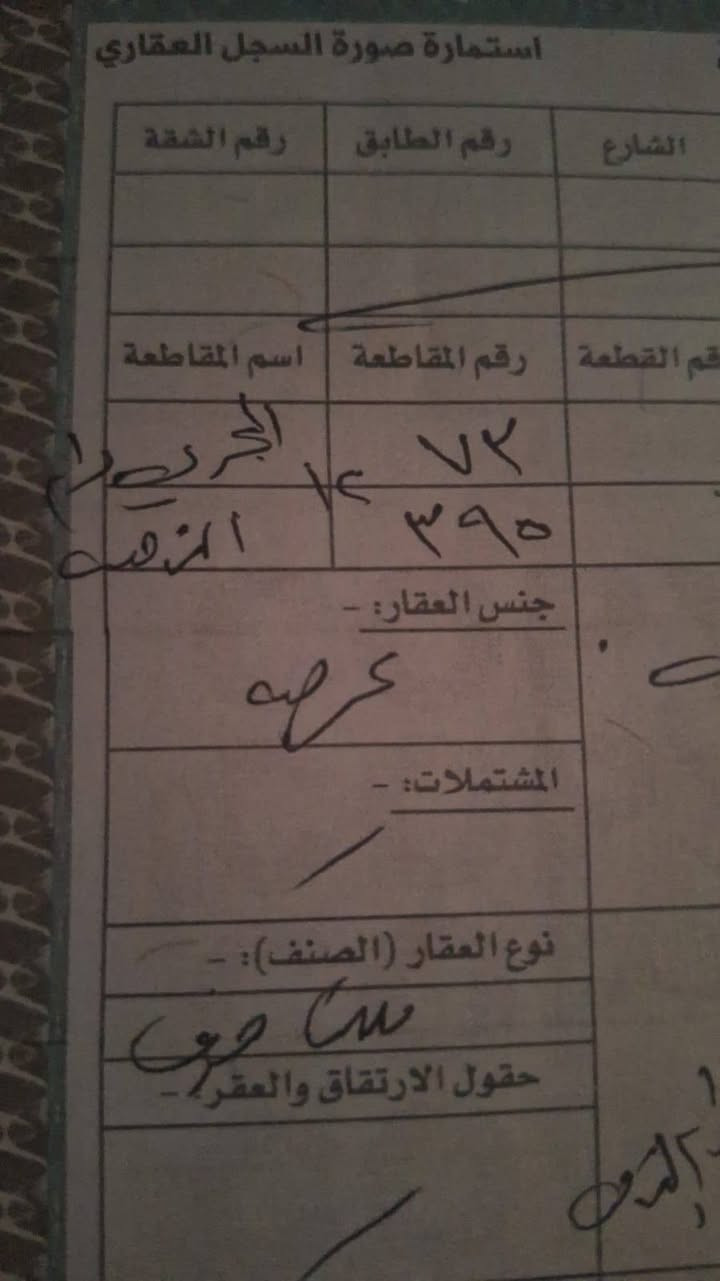 استمارة صورة السجل العقاري
الشارع رقم الطابق رقم الشقة
رقم القطعة رقم المقاطعة اسم المقاطعة
٧٣
٣٩٥
جنس العقار: -
عرصه
المشتملات: -
نوع العقار (الصنف): -
ملك صرف
حقول الارتقاق والعقر: -